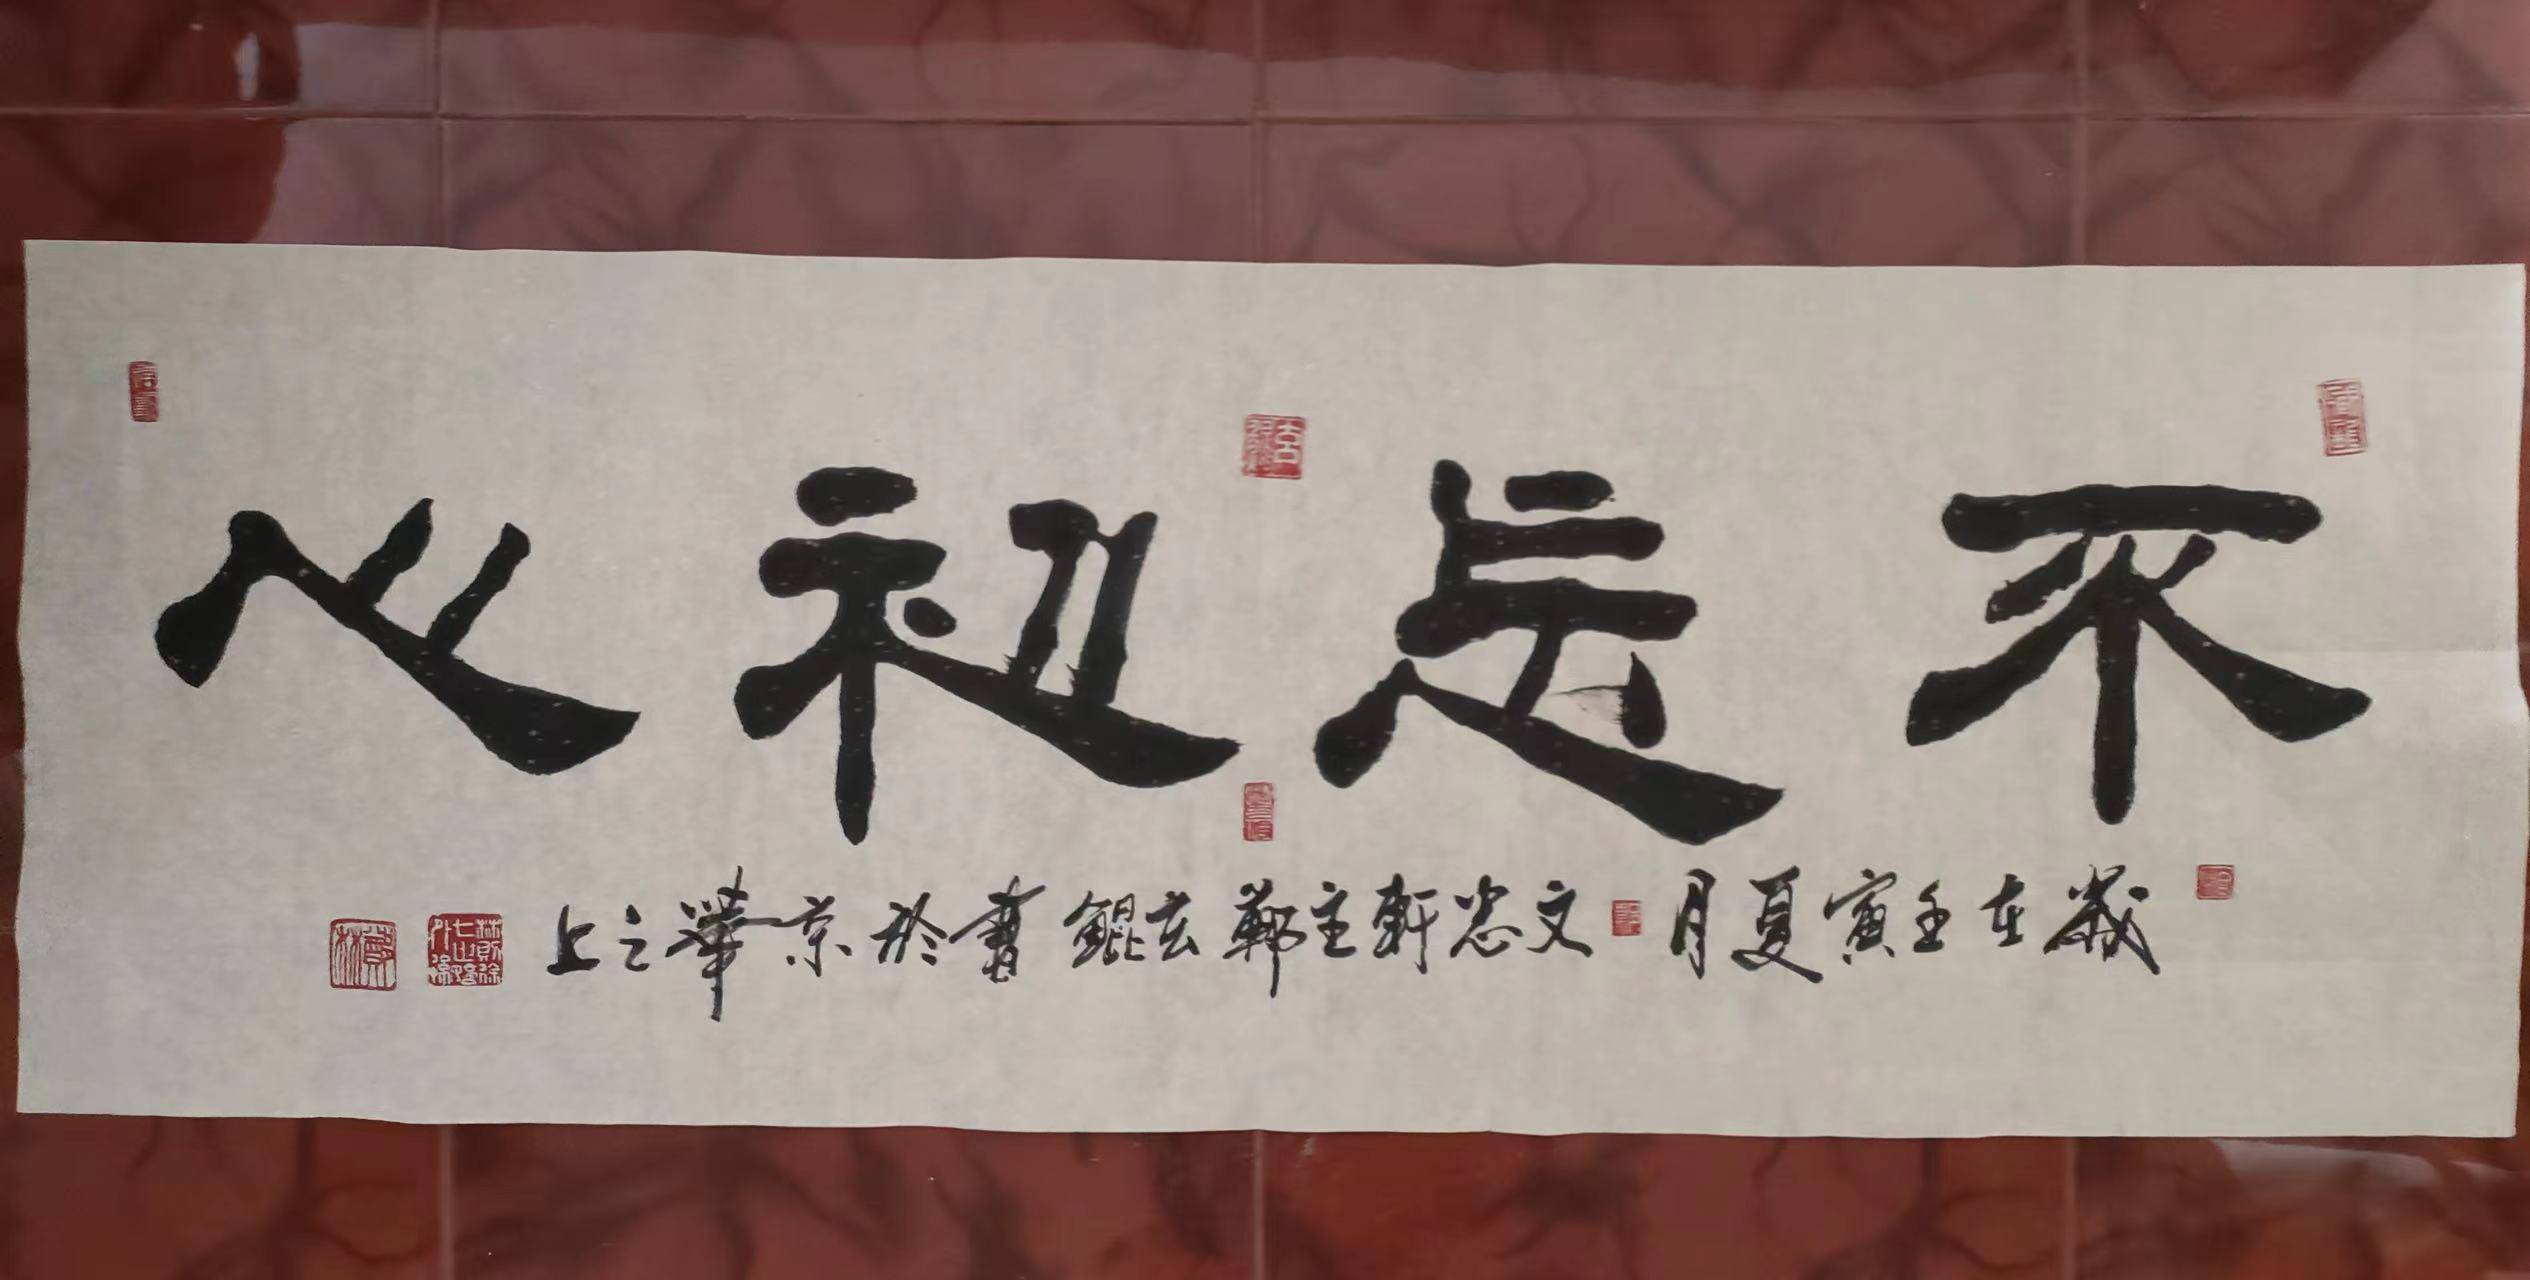 不忘初心
歲在壬寅夏月文忠軒主鄭玄錕書於京華之上